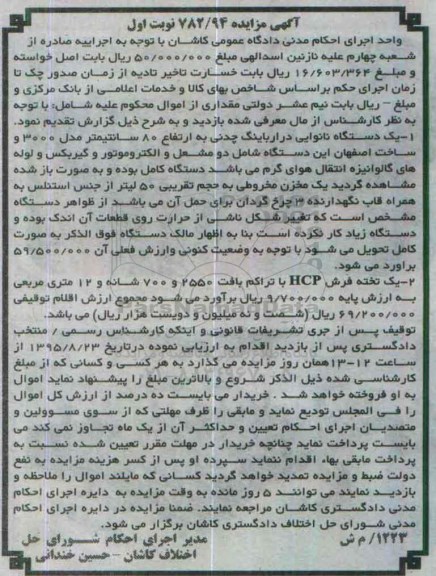 آگهی مزایده ۷۸۲/۹۴ نوبت اول
واحد اجرای احکام مدنی دادگاه عمومی کاشان با توجه به اجراییه صادره از
شعبه چهارم علیه نازنین اسدالهی مبلغ ۵۰/۰۰۰/۰۰۰ ریال بابت اصل خواسته
و مبلغ ۱۶/۶۰۳/۳۶۴ ریال بابت خسارت تاخیر تادیه از زمان صدور چک تا
زمان اجرای حکم براساس شاخص بهای کالا و خدمات اعلامی از بانک مرکزی و
مبلغ - ریال بابت نیم عشر دولتی مقداری از اموال محکوم علیه شامل: با توجه
به نظر کارشناس از مال معرفی شده بازدید و به شرح ذیل گزارش تقدیم نمود.
۱-یک دستگاه نانوایی درارباینگ چدنی به ارتفاع ۸۰ سانتیمتر مدل ۳۰۰۰ و
ساخت اصفهان این دستگاه شامل دو مشعل و الکتروموتور و گیربکس و لوله
های گالوانیزه انتقال هوای گرم می باشد دستگاه کامل بوده و به صورت باز شده
مشاهده گردید یک مخزن مخروطی به حجم تقریبی ۵۰ لیتر از جنس استنلس به
همراه قاب نگهدارنده ۳ چرخ گردان برای حمل آن می باشد از ظواهر دستگاه
مشخص است که تغییر شکل ناشی از حرارت روی قطعات آن اندک بوده و
دستگاه زیاد کار نکرده است بنا به اظهار مالک دستگاه فوق الذکر به صورت
کامل تحویل می شود با توجه به وضعیت کنونی وارزش فعلی آن ۵۹/۵۰۰/۰۰۰
برآورد می شود.
۲-یک تخته فرش HCP با تراکم بافت ۲۵۵۰ و ۷۰۰ شانه و ۱۲ متری مربعی
به ارزش پایه ۹/۷۰۰/۰۰۰ ریال برآورد می شود مجموع ارزش اقلام توقیفی
۶۹/۲۰۰/۰۰۰ ریال (شصت و نه میلیون و دویست هزار ریال) می باشد.
توقیف پس از جری تشریفات قانونی و اینکه کارشناس رسمی / منتخب
دادگستری پس از بازدید اقدام به ارزیابی نموده درتاریخ ۱۳۹۵/۸/۲۳ از
ساعت ۱۲-۱۳همان روز مزایده می گذارد به هر کسی و کسانی که از مبلغ
کارشناسی شده ذیل الذکر شروع و بالاترین مبلغ را پیشنهاد نماید اموال
به او فروخته خواهد شد . خریدار می بایست ده درصد از ارزش کل اموال
را فی المجلس تودیع نماید و مابقی را ظرف مهلتی که از سوی مسوولین و
متصدیان اجرای احکام تعیین و حداکثر آن از یک ماه تجاوز نمی کند می
بایست پرداخت نماید چنانچه خریدار در مهلت مقرر تعیین شده نسبت به
پرداخت مابقی بهاء اقدام ننماید سپرده او پس از کسر هزینه مزایده به نفع
دولت ضبط و مزایده تجدید خواهد گردید کسانی که مایلند اموال را ملاحظه و
بازدید نمایند می توانند ۵ روز مانده به وقت مزایده به دایره اجرای احکام
مدنی دادگستری کاشان مراجعه نمایند. ضمنا مزایده در دایره اجرای احکام
مدنی شورای حل اختلاف دادگستری کاشان برگزار می شود.
۱۲۲۳/ م ش
مدیر اجرای احکام شورای حل
اختلاف کاشان - حسین خندانی